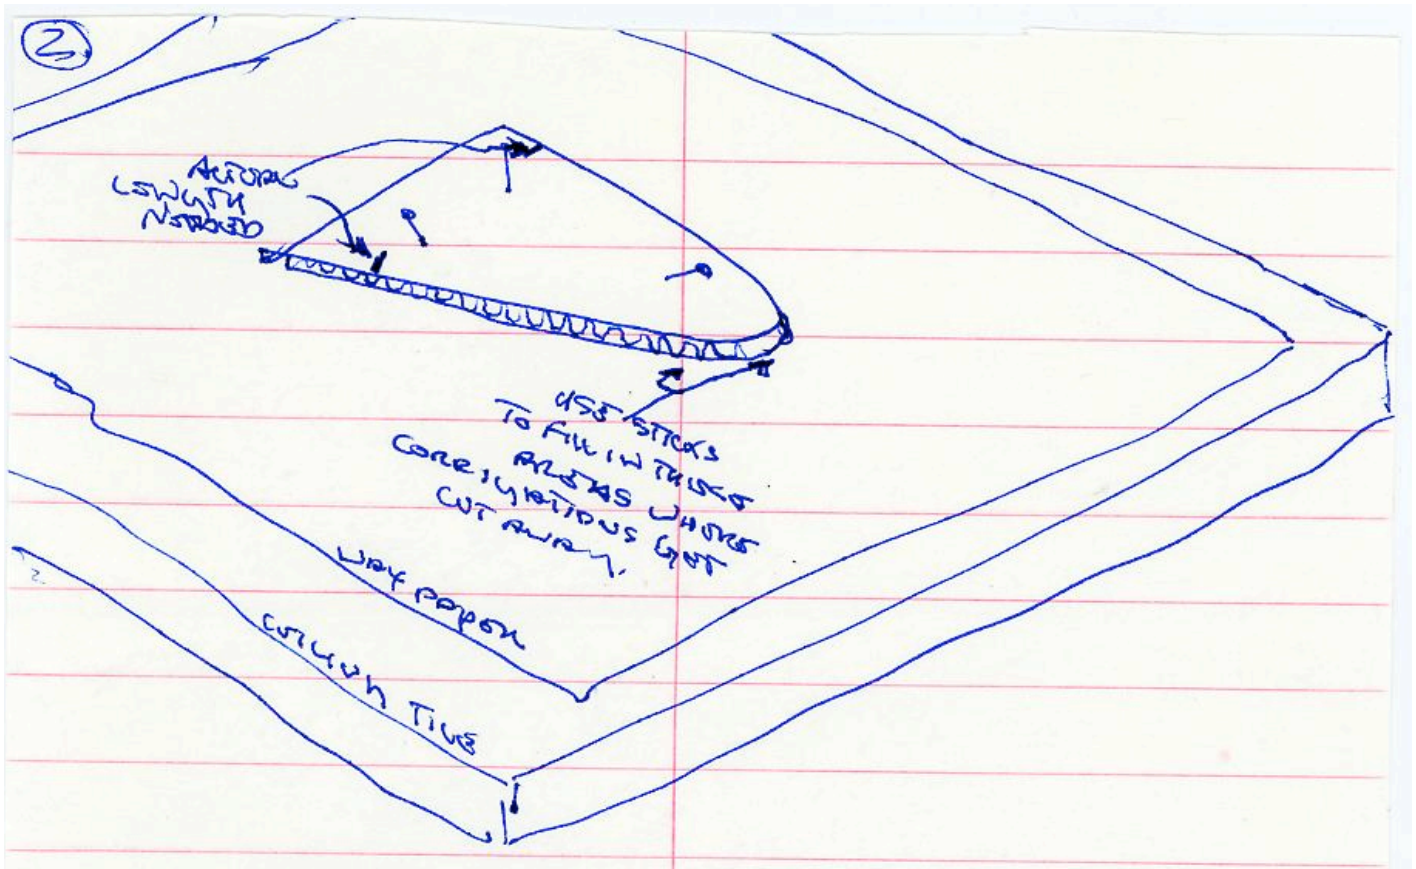 2
ACTUAL
LENGTH
NEEDED
USE STICKS
TO FILL IN THESE
AREAS WHERE
CORRUGATIONS GOT
CUT AWAY.
WAX PAPER
CEILING TILE
2